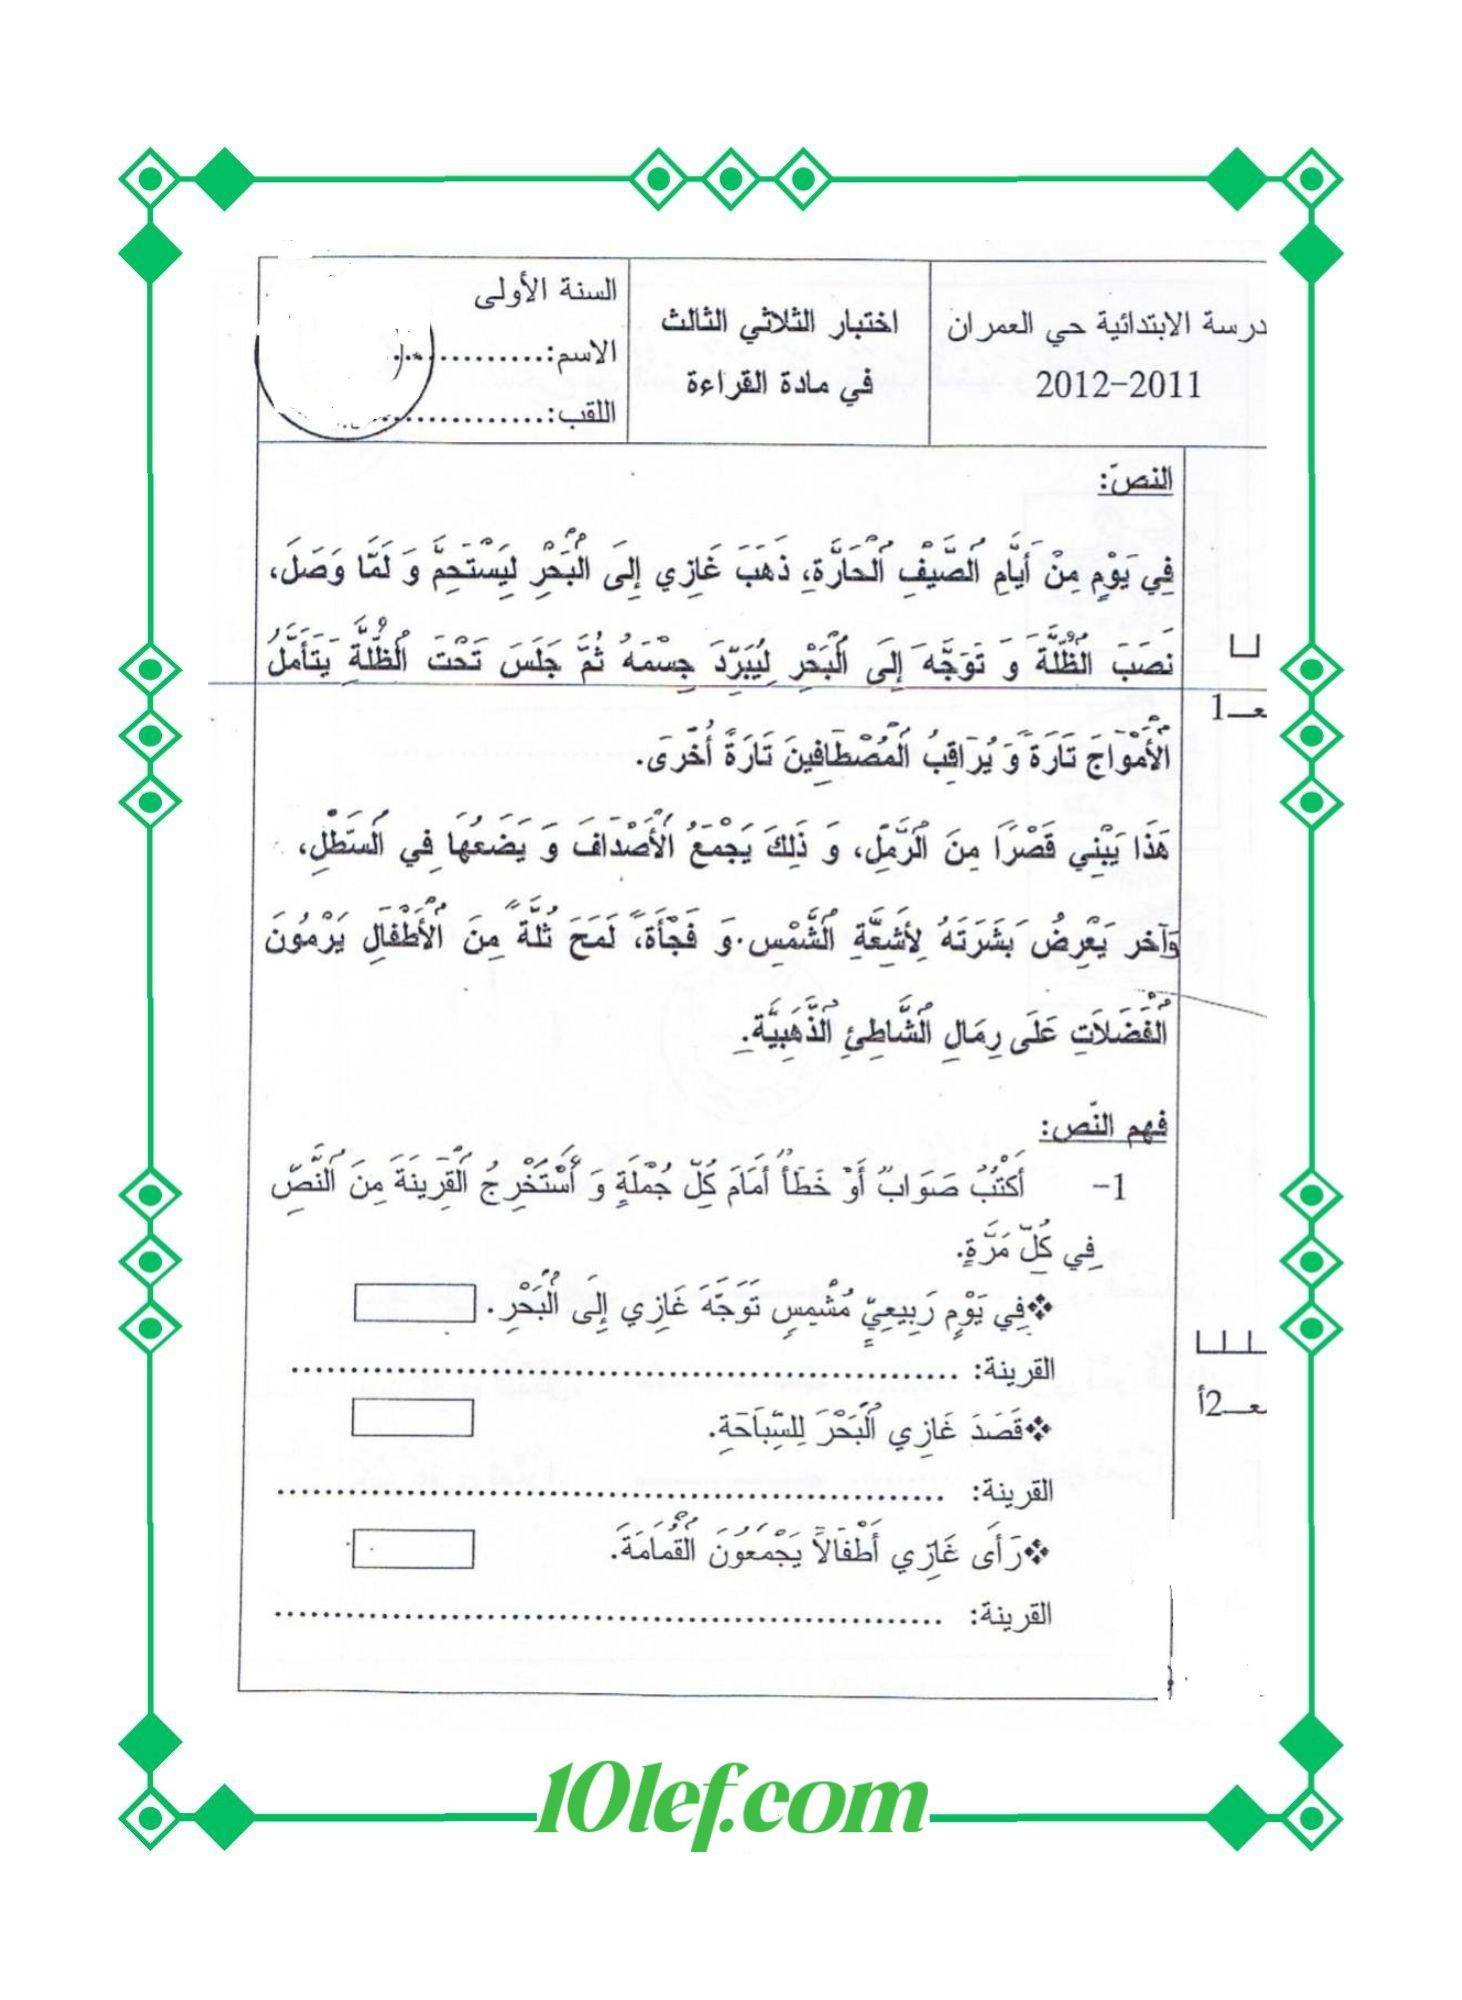 درسة الابتدائية حي العمران
2012-2011
اختبار الثلاثي الثالث
في مادة القراءة
السنة الأولى
الاسم:.............
اللقب:.................
النصّ:
فِي يَوْمٍ مِنْ أَيَّامِ الصَّيْفِ الْحَارَّةِ، ذَهَبَ غَازِي إِلَى الْبَحْرِ لِيَسْتَحِمَّ وَ لَمَّا وَصَلَ،
نَصَبَ الظُّلَّةَ وَ تَوَجَّهَ إِلَى الْبَحْرِ لِيُبَرِّدَ جِسْمَهُ ثُمَّ جَلَسَ تَحْتَ الظُّلَّةِ يَتَأَمَّلُ
الْأَمْوَاجَ تَارَةً وَ يُرَاقِبُ الْمُصْطَافِينَ تَارَةً أُخْرَى.
هَذَا يَبْنِي قَصْرًا مِنَ الرَّمْلِ، وَ ذَلِكَ يَجْمَعُ الْأَصْدَافَ وَ يَضَعُهَا فِي السَّطْلِ،
وَآخر يَعْرِضُ بَشَرَتَهُ لِأَشِعَّةِ الشَّمْسِ.وَ فَجْأَةً، لَمَحَ ثُلَّةً مِنَ الْأَطْفَالِ يَرْمُونَ
الْفَضَلَاتِ عَلَى رِمَالِ الشَّاطِئِ الذَّهَبِيَّةِ.
فهم النّص:
1- أَكْتُبُ صَوَابٌ أَوْ خَطَأٌ أَمَامَ كُلِّ جُمْلَةٍ وَ أَسْتَخْرِجُ الْقَرِينَةَ مِنَ النَّصِّ
فِي كُلِّ مَرَّةٍ.
❖فِي يَوْمٍ رَبِيعِيٍّ مُشْمِسٍ تَوَجَّهَ غَازِي إِلَى الْبَحْرِ.
القرينة: ........................................................
❖قَصَدَ غَازِي الْبَحْرَ لِلسِّبَاحَةِ.
القرينة: ........................................................
❖رَأَى غَازِي أَطْفَالًا يَجْمَعُونَ الْقُمَامَةَ.
القرينة: ........................................................
مــعـ1
مــعـ2أ
10lef.com